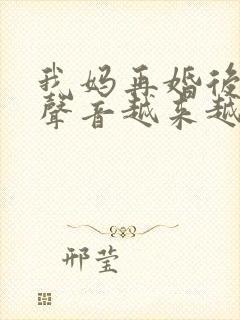 我妈再婚後
聲音越来越
邢莹